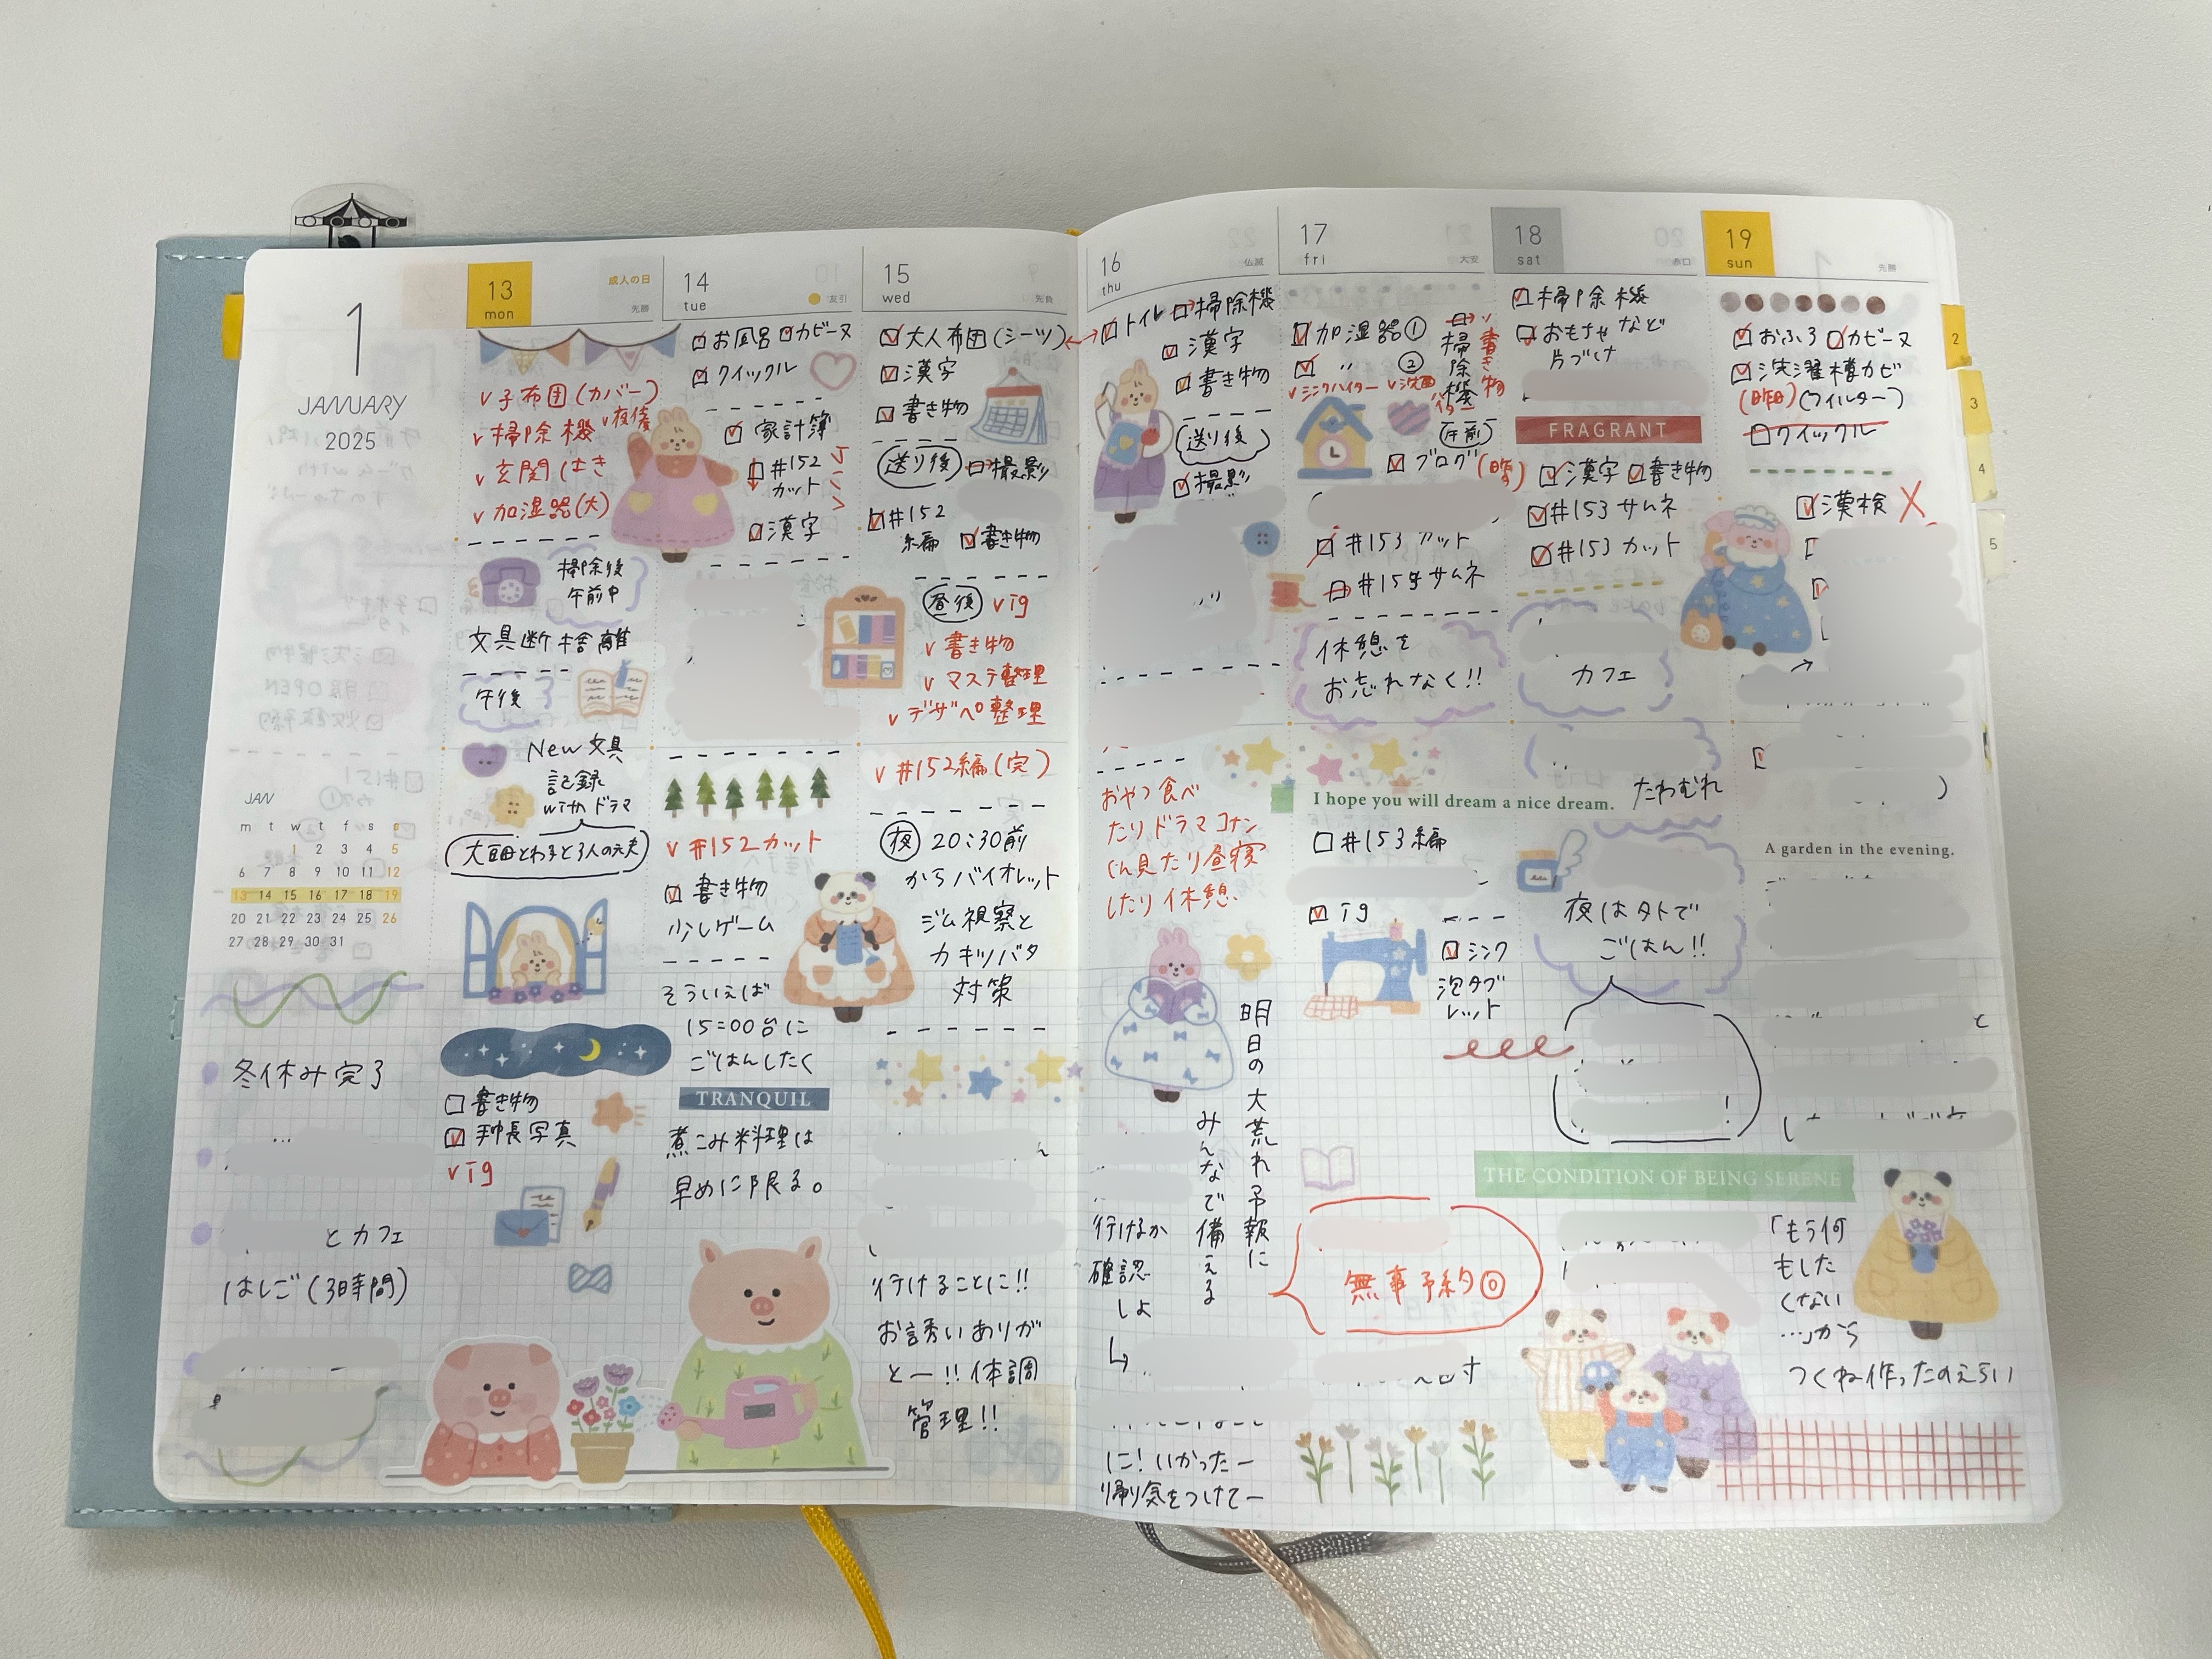 1
JANUARY
2025
JAN
m t w t f s s
1 2 3 4 5
6 7 8 9 10 11 12
13 14 15 16 17 18 19
20 21 22 23 24 25 26
27 28 29 30 31
冬休み完了
とカフェ
はしご(3時間)
13
mon
成人の日
先勝
v子布団(カバー)
v掃除機 v夜優
v玄関はき
v加湿器(大)
掃除後
午前中
文具断捨離
午後
New 文具
記録
withドラマ
大豆田とわ子と3人の元夫
書き物
手帳写真
v ig
14
tue
友引
お風呂 カビーヌ
クイックル
家計簿
#152
カット
漢字
v #152カット
書き物
少しゲーム
そういえば
15:00台に
ごはんしたく
TRANQUIL
煮こみ料理は
早めに限る。
15
wed
先負
大人布団(シーツ)
漢字
書き物
送り後 撮影
#152
編 書き物
昼後 v ig
v 書き物
v マステ整理
v デザペ整理
v #152編(完)
夜 20:30前
からバイオレット
ジム視察と
カキツバタ
対策
行けることに!!
お誘いありが
とー!!体調
管理!!
16
thu
仏滅
トイレ 掃除機
漢字
書き物
送り後
撮影
おやつ食べ
たりドラマコナン
くん見たり昼寝
したり休憩
明日の大荒れ予報に
みんなで備える
行けるか
確認
しよ
に!いかったー
帰り気をつけてー
17
fri
大安
加湿器①
〃 ②
掃除機
書き物
vシンクハイター
午前
ブログ(昨)
#153 カット
#153サムネ
休憩を
お忘れなく!!
I hope you will dream a nice dream.
#153編
ig
シンク
泡タブ
レット
無事予約◎
18
sat
赤口
掃除機
おもちゃなど
片づけ
FRAGRANT
漢字 書き物
#153サムネ
#153カット
カフェ
たわむれ
夜は外で
ごはん!!
THE CONDITION OF BEING SERENE
19
sun
先勝
おふろ カビーヌ
洗濯槽カビ
(昨日)(フィルター)
クイックル
漢検 X
A garden in the evening.
「もう何
もした
くない
…」から
つくね作ったのえらい
2
3
4
5